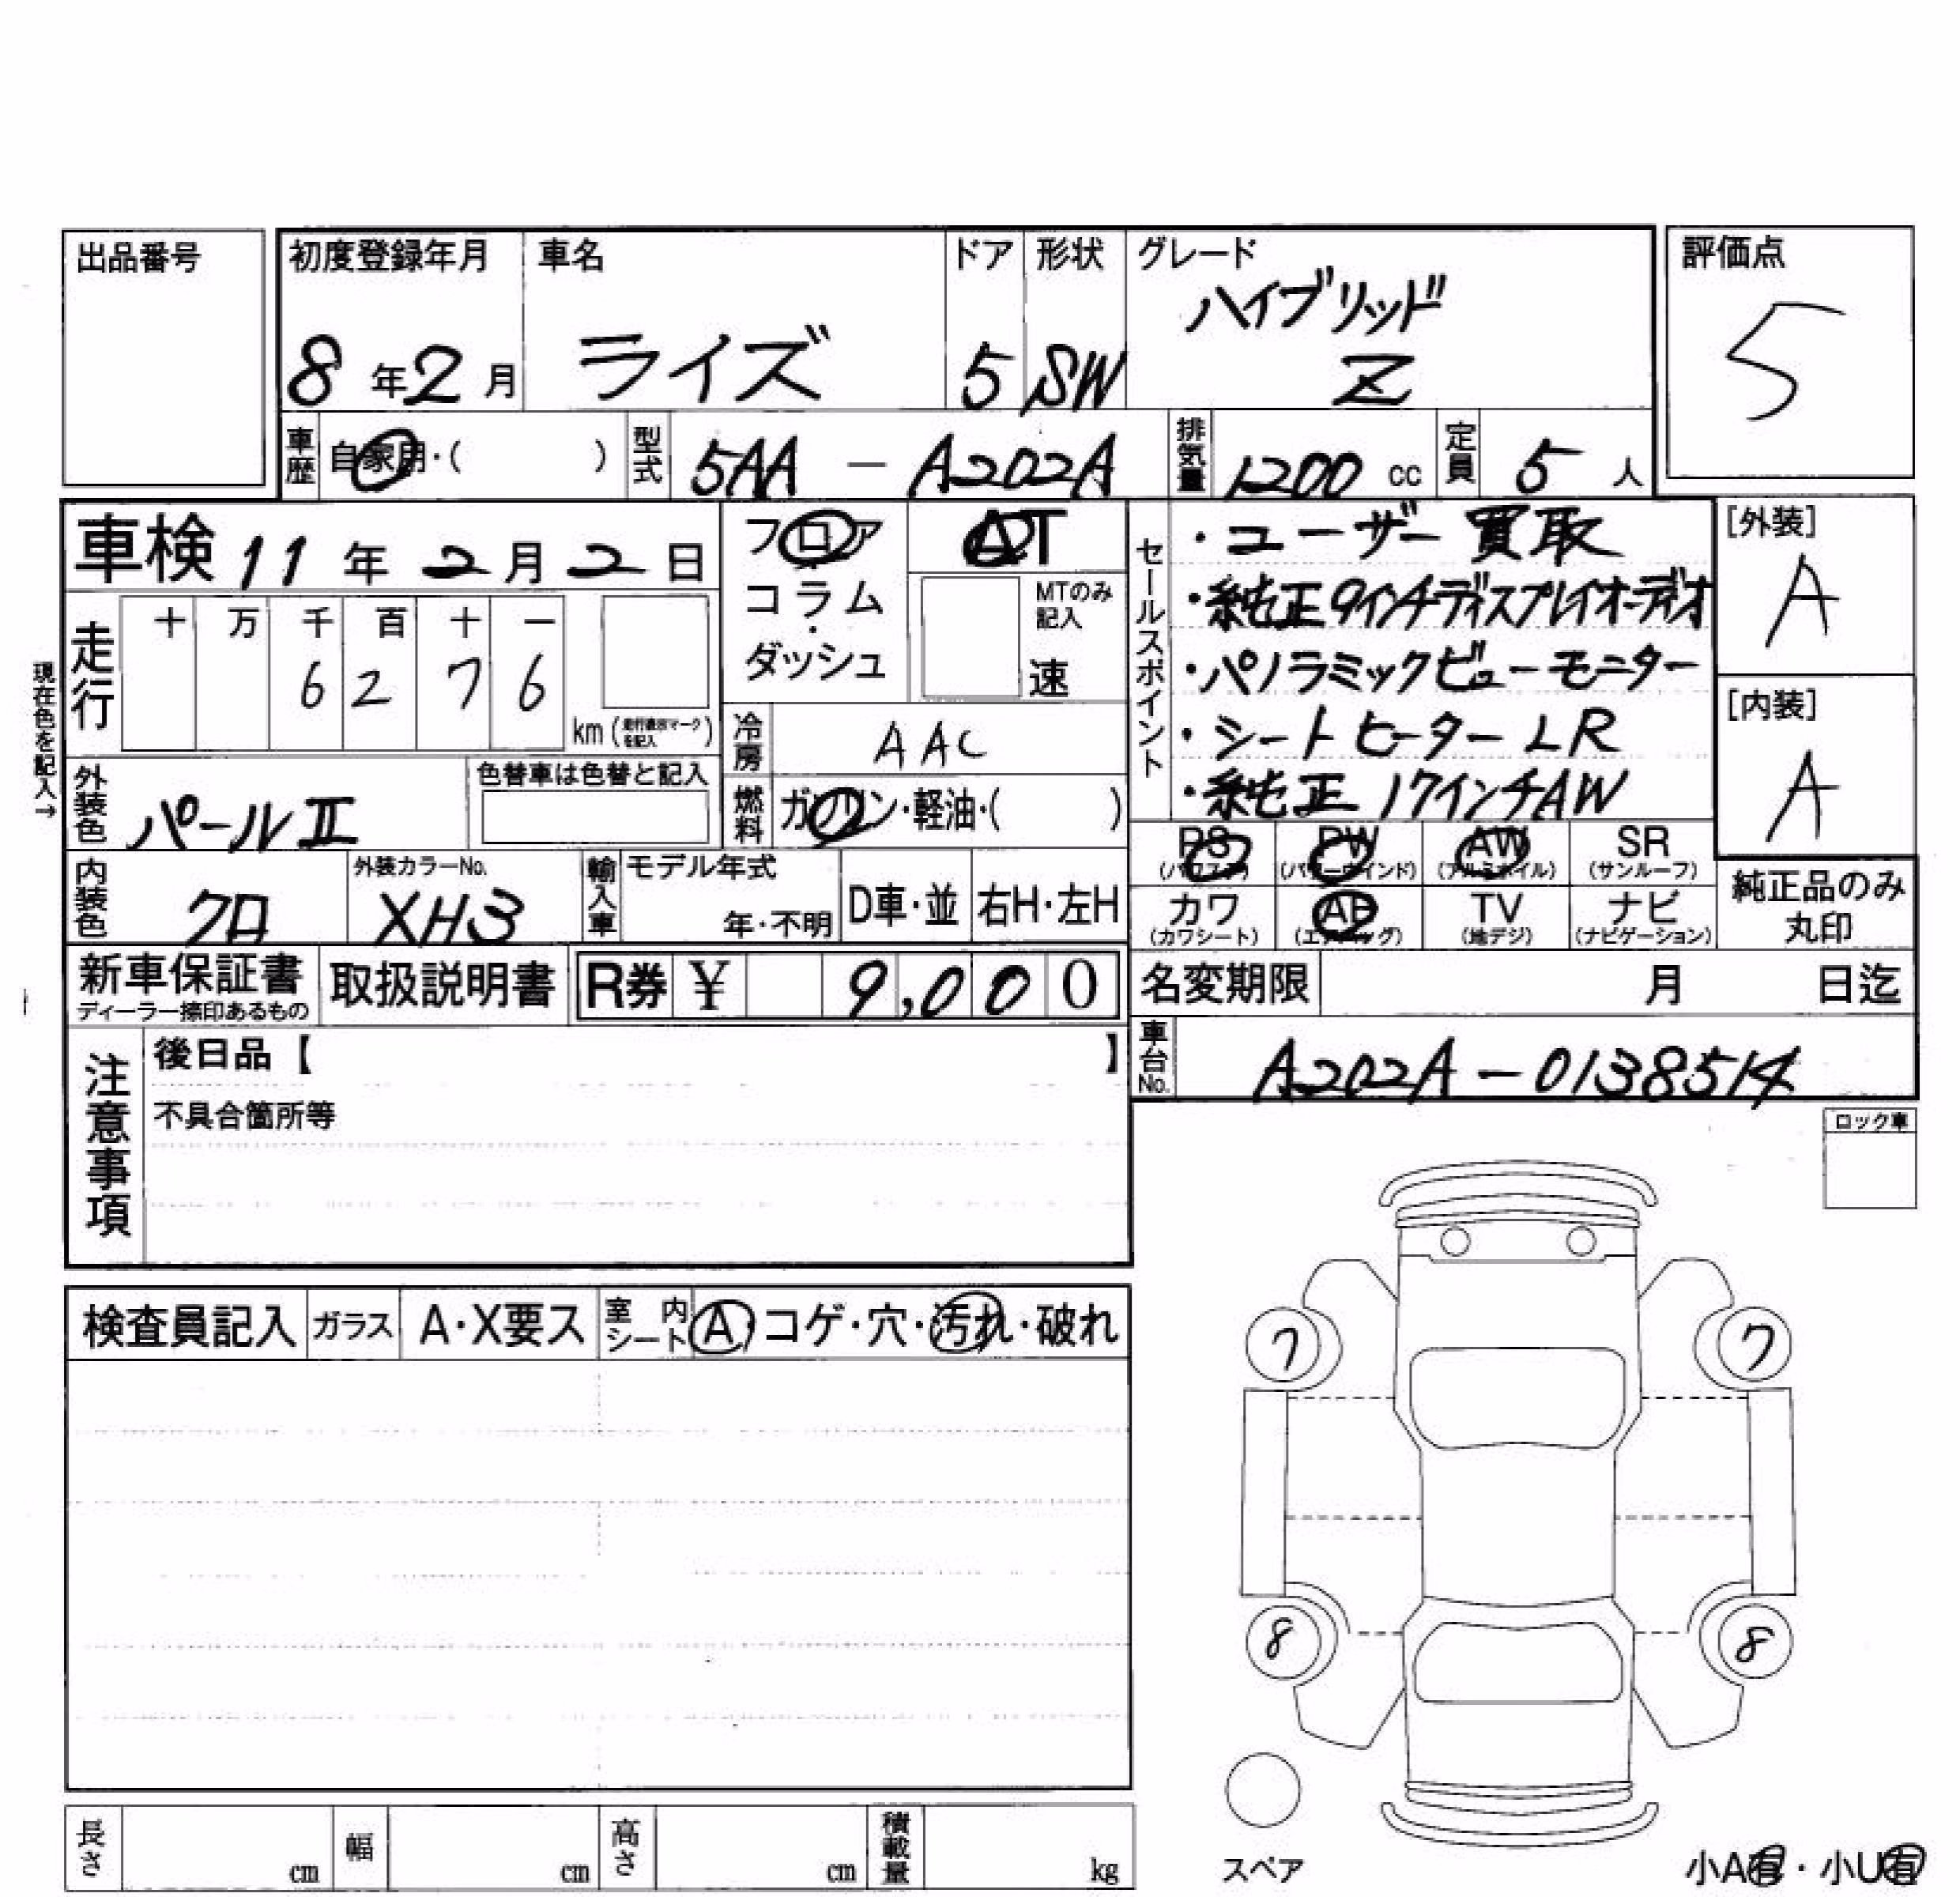 出品番号
初度登録年月 車名 ドア 形状 グレード 評価点
8年2月 ライズ 5 SW ハイブリッド
Z
5
車歴 自家用・( ) 型式 5AA - A202A 排気量 1200 cc 定員 5 人
車検 11年2月2日 フロア AT
コラム・ダッシュ MTのみ記入 速
セールスポイント
・ユーザー買取
・純正9インチディスプレイオーディオ
・パノラミックビューモニター
・シートヒーターLR
・純正17インチAW
[外装] A
[内装] A
現在色を記入→
走行 十 万 千 百 十 一
6 2 7 6 km (走行表示マークを記入)
冷房 AAC
外装色 パールⅡ 色替車は色替と記入
燃料 ガソリン・軽油・( )
PS (パワステ) PW (パワーウインド) AW (アルミホイル) SR (サンルーフ)
カワ (カワシート) AB (エアバッグ) TV (地デジ) ナビ (ナビゲーション)
純正品のみ丸印
内装色 クロ 外装カラーNo. XH3 輸入車 モデル年式 年・不明 D車・並 右H・左H
新車保証書 ディーラー捺印あるもの 取扱説明書 R券 ¥ 9,000
名変期限 月 日迄
車台No. A202A-0138514
注意事項
後日品【 】
不具合箇所等
ロック車
検査員記入 ガラス A・X要ス 室内シート A・コゲ・穴・汚れ・破れ
7 7
8 8
スペア
小A有・小U有
長さ cm 幅 cm 高さ cm 積載量 kg